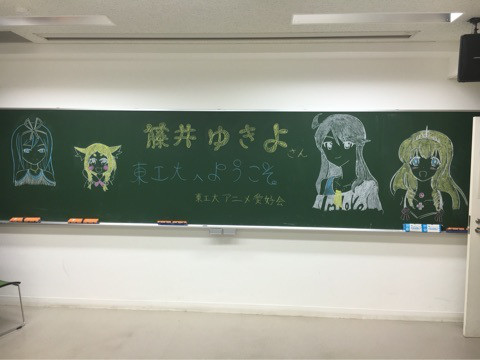 藤井ゆきよさん
東工大へようこそ。
東工大アニメ愛好会